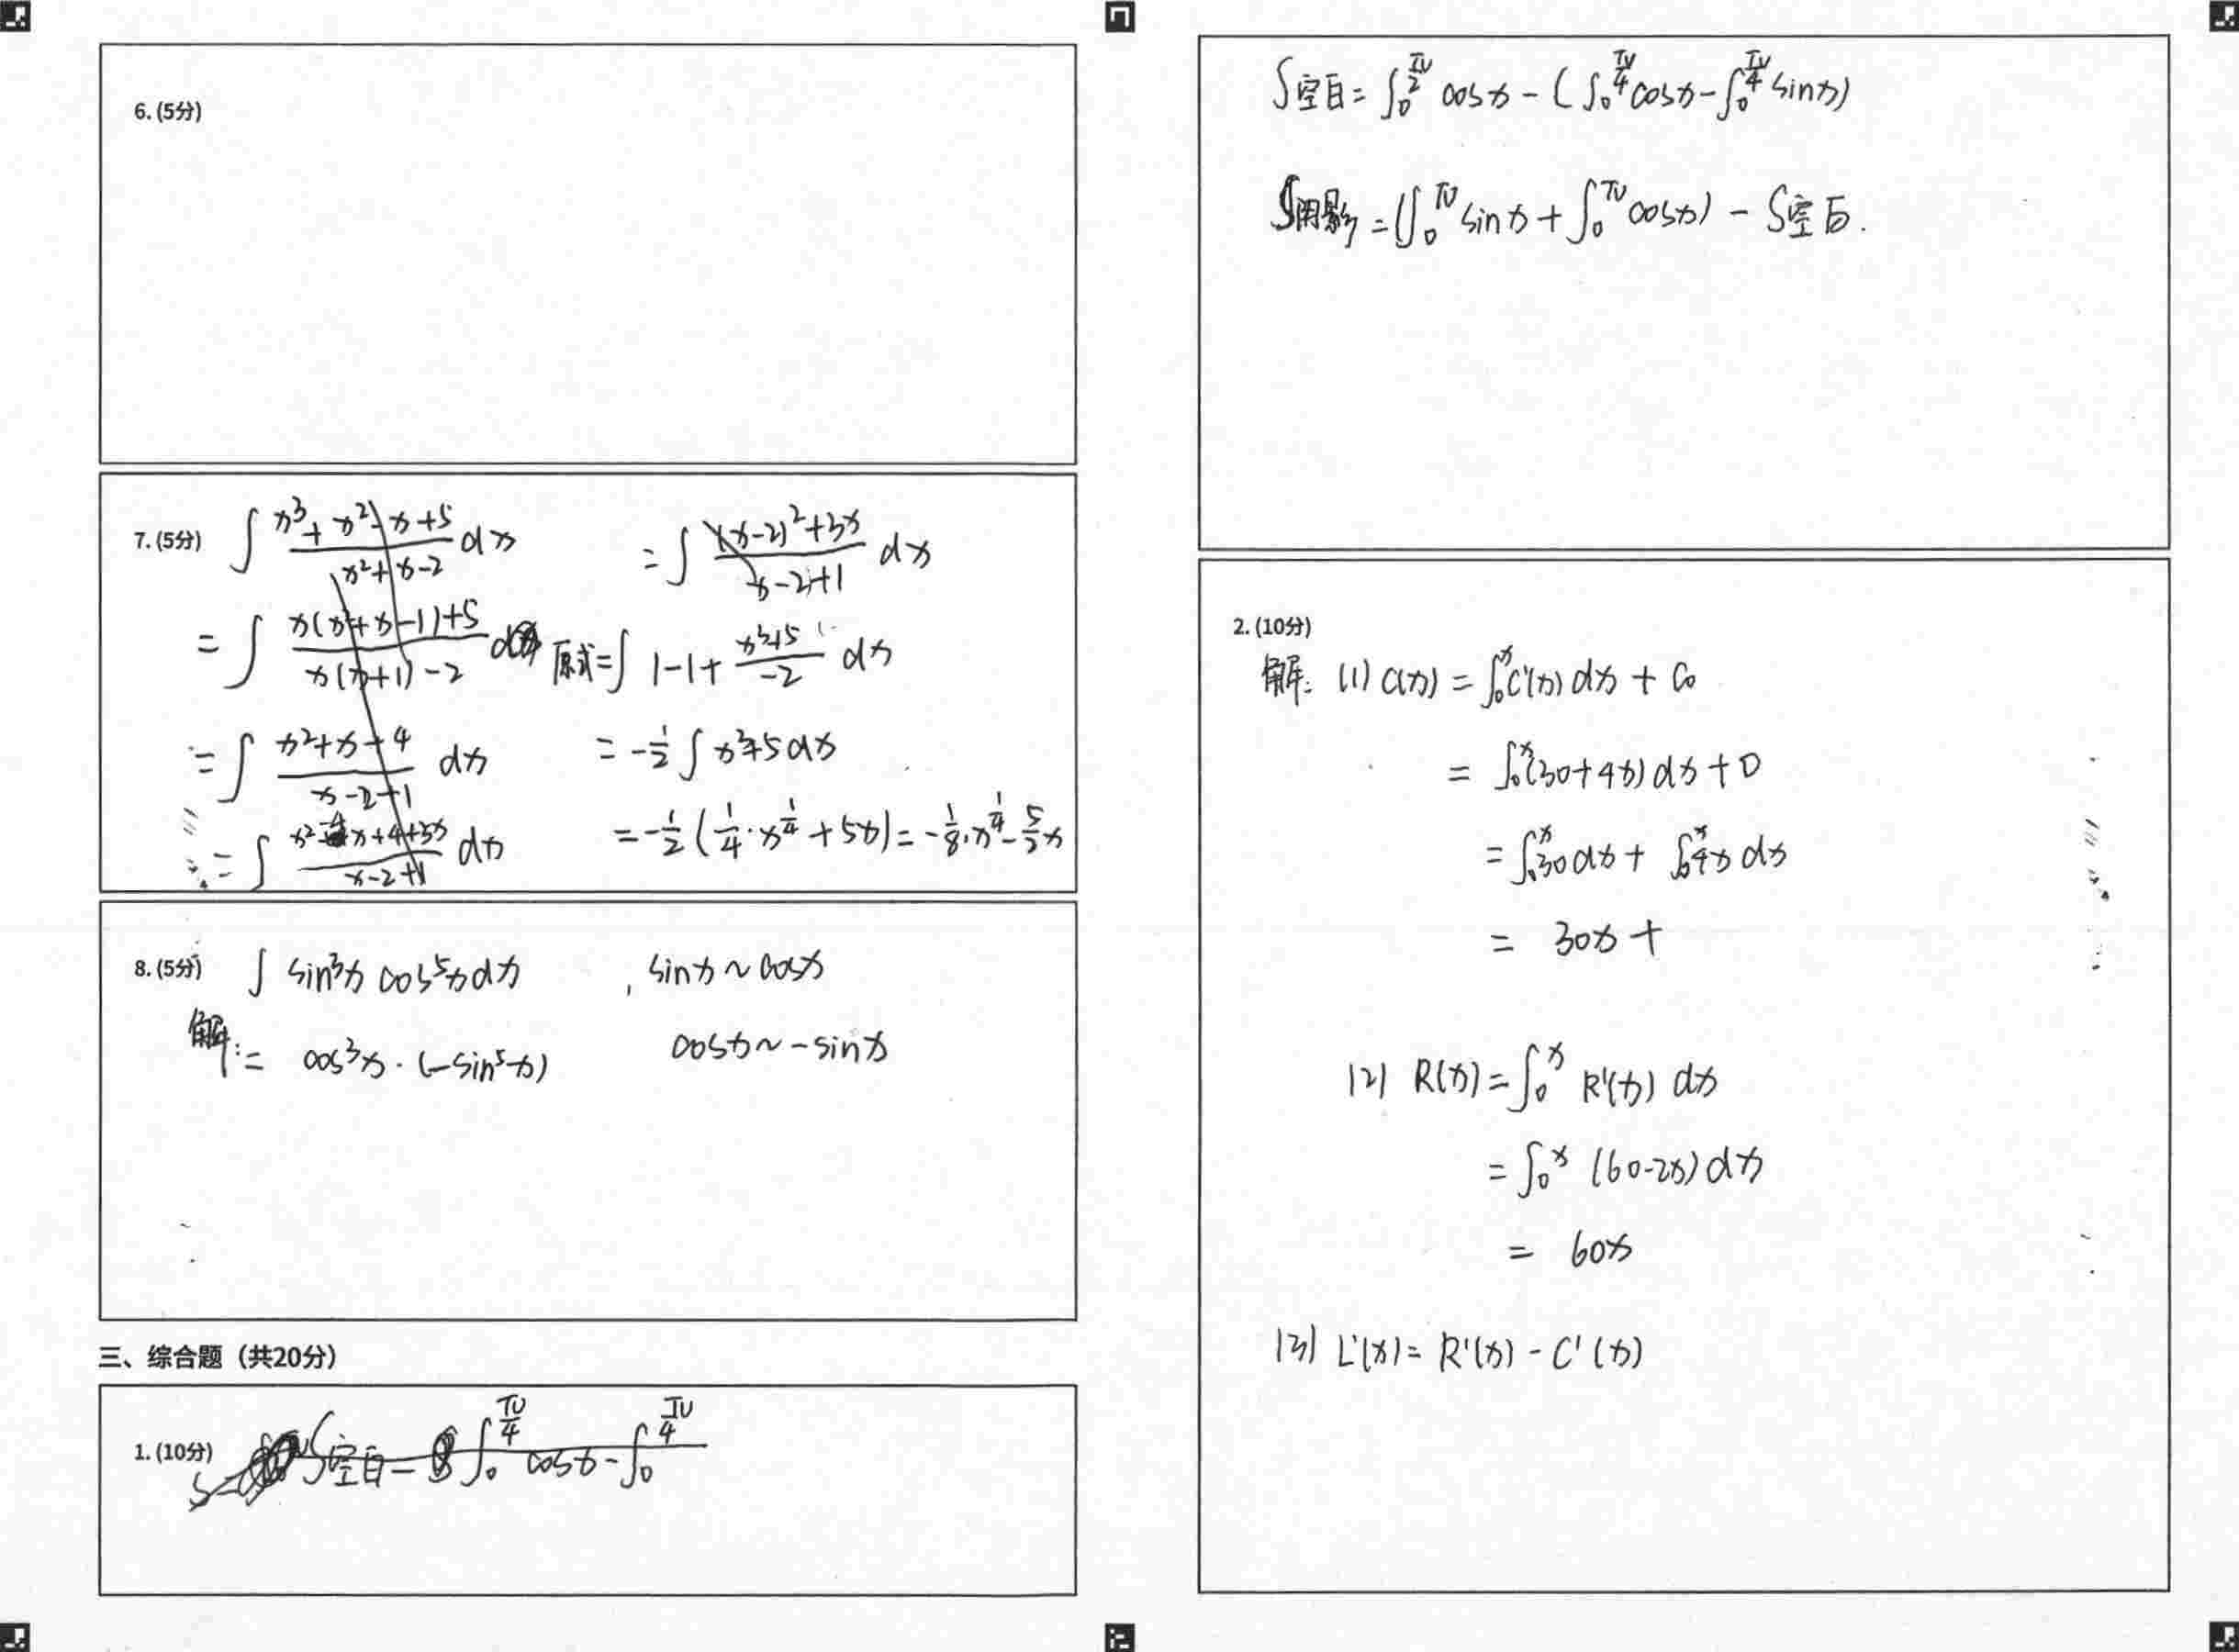 6. (5分)
7. (5分) ∫ (x³+x²-x+5)/(x²+x-2) dx
= ∫ (x(x²+x-1)+5)/(x(x+1)-2)
= ∫ (x²+x+4)/(x-2+1) dx
= ∫ (x²-4x+4+3x)/(x-2+1) dx
= ∫ ((x-2)²+3x)/(x-2+1) dx
原式=∫ 1-1+ (x³+5)/(-2) dx
= -1/2 ∫ x³+5 dx
= -1/2 (1/4·x^(1/4) + 5x) = -1/8·x^(1/4) - 5/2 x
8. (5分) ∫ sin³x cos⁵x dx , sinx ~ cosx
解: = cos³x·(-sin⁵x) cosx ~ -sinx
三、综合题（共20分）
1. (10分) S空白= ∫₀^(π/4) cosx - ∫₀^(π/4)
S空白= ∫₀^(π/2) cosx - (∫₀^(π/4) cosx - ∫₀^(π/4) sinx)
S阴影 = (∫₀^π sinx + ∫₀^π cosx) - S空白.
2. (10分)
解: (1) C(x) = ∫₀ˣ C'(x) dx + C₀
= ∫₀ˣ (30+4x) dx + 0
= ∫₀ˣ 30 dx + ∫₀ˣ 4x dx
= 30x +
(2) R(x) = ∫₀ˣ R'(x) dx
= ∫₀ˣ (60-2x) dx
= 60x
(3) L'(x) = R'(x) - C'(x)